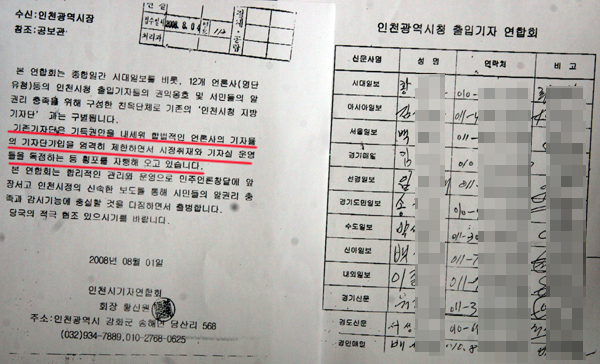 수신: 인천광역시장
참조: 공보관
접수일시 2008. 8. 04
처리과
본 연합회는 종합일간 시대일보를 비롯, 12개 언론사(명단
유첨)등의 인천시청 출입기자들의 권익옹호 및 시민들의 알
권리 충족을 위해 구성한 친목단체로 기존의 '인천시청 지방
기자단' 과는 구별됩니다.
기존기자단은 기득권만을 내세워 합법적인 언론사의 기자들
의 기자단가입을 엄격히 제한하면서 시정취재와 기자실 운영
등을 독점하는 등 횡포를 자행해 오고 있습니다.
본 연합회는 합리적인 관리와 운영으로 민주언론창달에 앞
장서고 인천시정의 신속한 보도를 통해 시민들의 알권리 충
족과 감시기능에 충실할 것을 다짐하면서 출범합니다.
당국의 적극 협조 있으시기를 바랍니다.
2008년 08월 01일
인천시기자연합회
회장 황산원
주소: 인천광역시 강화군 송해면 당산리 568
(032)934-7889,010-2768-0625
인천광역시청 출입기자 연합회
신문사명 성 명 연락처 비 고
시대일보 황 010-
아시아일보 김
서울일보 백 011-
경기매일 김 010
선경일보 임 011-
경기도민일보 송 010-
수도일보 011-
신아일보 백 011-7
내외일보 이 011-
경기신문 유 011-3
경도신문 서 010-6
경인매일 배 010.8